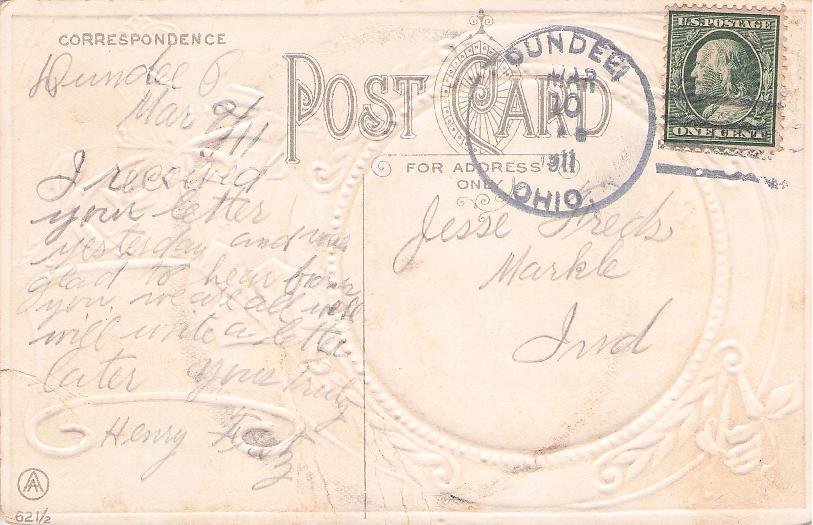 CORRESPONDENCE
Dundee O
Mar 9/11
I received
your letter
yesterday and was
glad to hear from
you. we are all well
will write a letter
later Yours Truly
Henry
POST CARD
FOR ADDRESS
ONLY
DUNDEE
MAR
10
1911
OHIO.
U.S. POSTAGE
ONE CENT
Jesse
Markle
Ind
AA
62 1/2